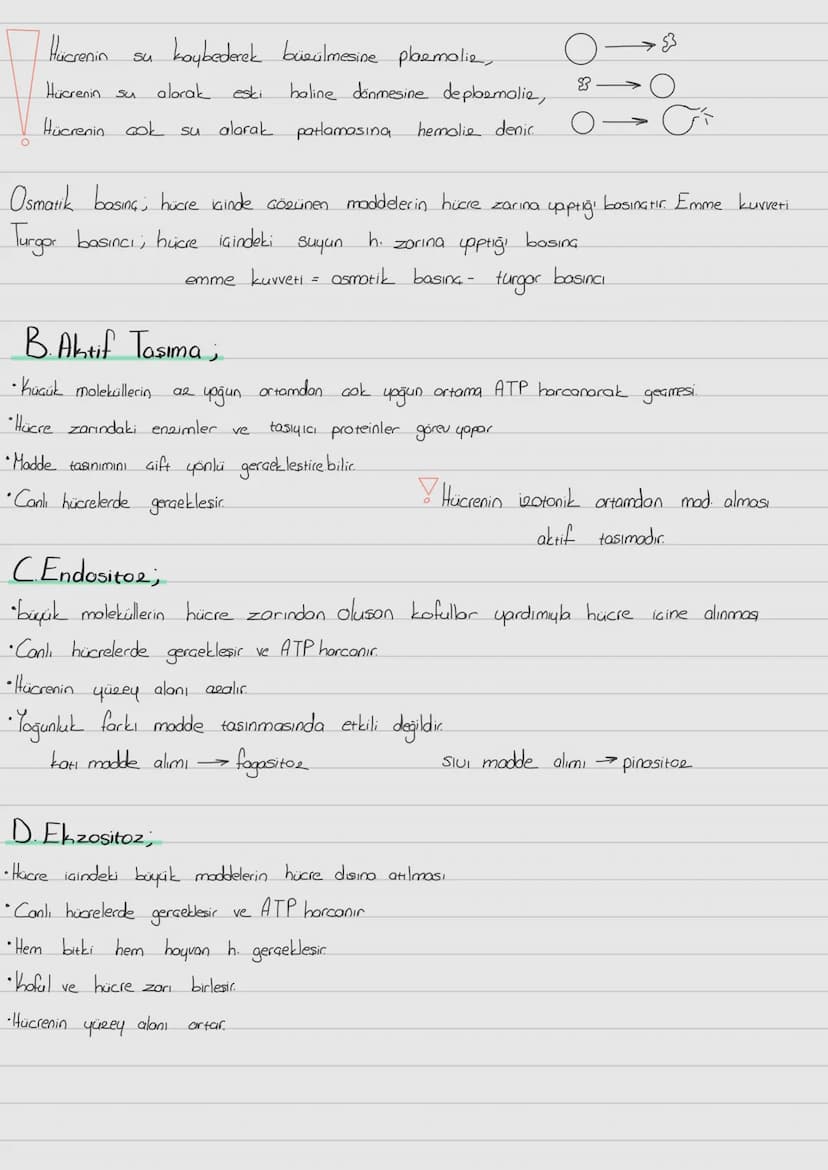 Hücrenin su kaybederek büzülmesine plazmoliz,
Hücrenin su alarak eski haline dönmesine deplazmoliz,
Hücrenin çok su alarak patlamasına hemoliz denir.
Osmatik basınç; hücre içinde çözünen maddelerin hücre zarına yaptığı basınçtır. Emme kuvveti
Turgor basıncı; hücre içindeki suyun h. zarına yaptığı basınç
emme kuvveti = osmotik basınç - turgor basıncı
B. Aktif Taşıma;
• Küçük moleküllerin az yoğun ortamdan çok yoğun ortama ATP harcanarak geçmesi.
• Hücre zarındaki enzimler ve taşıyıcı proteinler görev yapar
• Madde taşınımını çift yönlü gerçekleştirebilir.
• Canlı hücrelerde gerçekleşir.
Hücrenin izotonik ortamdan mad. alması
aktif taşımadır.
C. Endositoz;
• büyük moleküllerin hücre zarından oluşan kofullar yardımıyla hücre içine alınması
• Canlı hücrelerde gerçekleşir ve ATP harcanır.
• Hücrenin yüzey alanı azalır.
• Yoğunluk farkı madde taşınmasında etkili değildir.
katı madde alımı → fagasitoz sıvı madde alımı → pinositoz
D. Ekzositoz;
• Hücre içindeki büyük maddelerin hücre dışına atılması.
• Canlı hücrelerde gerçekleşir ve ATP harcanır
• Hem bitki hem hayvan h. gerçekleşir.
• Koful ve hücre zarı birleşir.
• Hücrenin yüzey alanı artar.